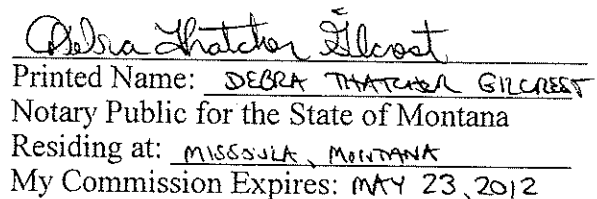 Debra Thatcher Gilcrest
Printed Name: DEBRA THATCHER GILCREST
Notary Public for the State of Montana
Residing at: MISSOULA, MONTANA
My Commission Expires: MAY 23, 2012